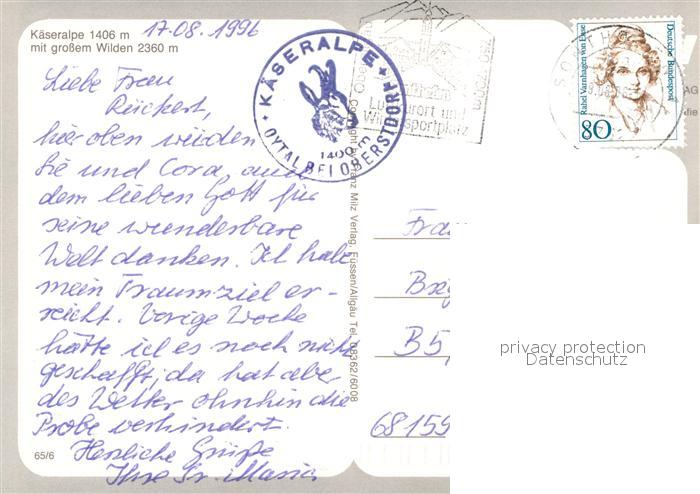 Käseralpe 1406 m
mit großem Wilden 2360 m
17.08.1996
Liebe Frau
Rückert,
hier oben würden
Sie und Cora, auch
dem lieben Gott für
seine wunderbare
Welt danken. Ich habe
mein Traumziel er-
reicht. Vorige Woche
hätte ich es noch nicht
geschafft, da hat aber
das Wetter ohnehin die
Probe verhindert.
Herzliche Grüße
Ihre Sr. Maria
65/6
KÄSERALPE
1400
OYTAL BEI OBERSTDORF
Luftkurort und
Wintersportplatz
SONTHO
Deutsche Bundespost
Rahel Varnhagen von Ense
80
Copyright by Franz Milz Verlag, Füssen/Allgäu Tel. 08362/6008
Frau
B5,
68159
privacy protection
Datenschutz